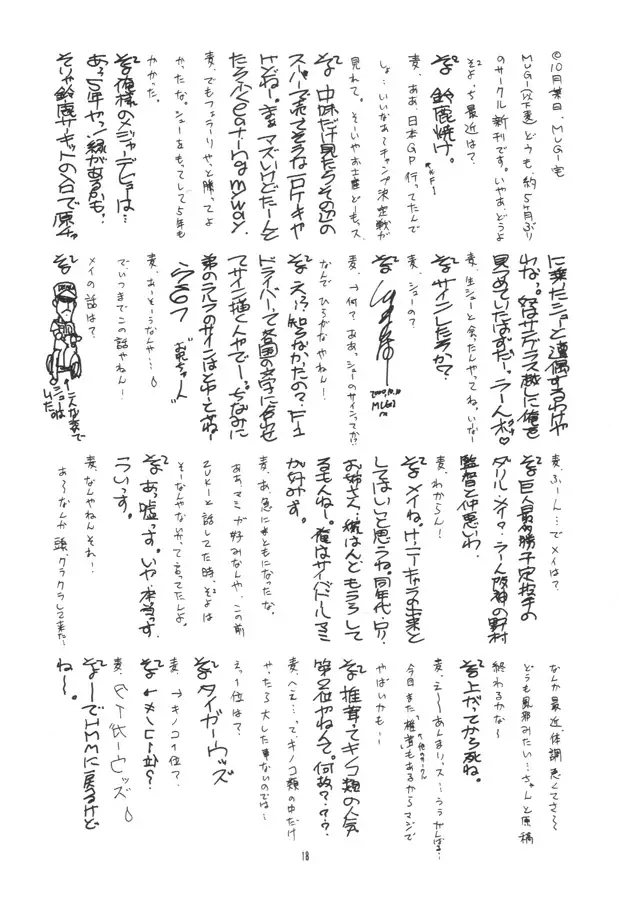 ©10月某日、MUGI宅
MUGI(以下麦)どうも、約5ヶ月ぶり
のサークル新刊です。いやぁ、どうよ
そよっち最近は?
そ² 鈴鹿焼け。
麦、ああ、日本GP行ってたんで
しょ…いいなぁ〜チャンプ決定戦が
見れて。そいやお土産ども。ス、
そ² 中味だけ見たらその辺の
スーパーで売ってそうな一口ケーキや
けどねー。まぁマズいけどたーんと
たらふくeating my way。
麦、でもフェラーリやと勝ってよ
かったな。シューをもってして5年も
かかった。
そ² 俺様のメジャーデビューは…
あっ5年やっ!縁があるかも。
そりゃ鈴鹿サーキットの入口で原チャ
に乗ったシューと遭遇するわけや
わなっ。奴はサングラス越しに俺を
見つめていたはずだー。うーん♡
麦、生シューと会ったんやってね。いなー
そ² サインしたろか?
麦、シューの?
そ²
2000.10.10
MUGI
麦、→何?ああ、シューのサインってか?
なんでひらがなやねん!
そ² え〜?知らなかたの?F1
ドライバーって各国の文字に合わせ
てサイン描くんやでー。ちなみに
弟のラルフのサインはと…やとねー
らるふ お兄ちゃーん
麦、あーそーうなんや…
でいつまでこの話やねん!
メイの話は?
そ²
←二人が来て
シューは
いた
麦、ふーん…でメイは?
そ² 巨人最多勝予定投手の
ダリル・メイ々、うーん阪神の野村
監督と仲悪いわ。
麦、わからん!
そ² メイね。けニーキャラの出来と
してはいいと思うね。同年代・ロリ・
お姉さん、続はんどもうろして
るもんねー。俺はサイドドールマミ
が好みす。
麦、あ急にまともになったな。
ああ、マミが好みなんや、この前
ZUKEと話してた時、そよは
そーなんだないかって言ってたんよ。
そ² あっ嘘っす。いや、本当っす。
ういっす。
麦、なんやねんそれ!
あ〜なんか頭、クラクラして来た〜
なんか最近、体調悪くてさ〜
どうも風邪みたい…ちゃんと原稿
終わるかな〜
そ² 上がってから死ね。
麦、え〜あんまりス…ううがんばる…
今日また「椎茸」もあるからマジで
やばいかも…
そ² 椎茸ってキノコ類の人気
第2位やねんて。何故???
麦、へえ…って、キノコ類の中だけ
やったら大した事ないのでは…
えっ1位は?
そ² タイガーウッズ
麦、→キノコ1位?
麦、
そ²ーーでHMに戻るけど
ね〜。
18